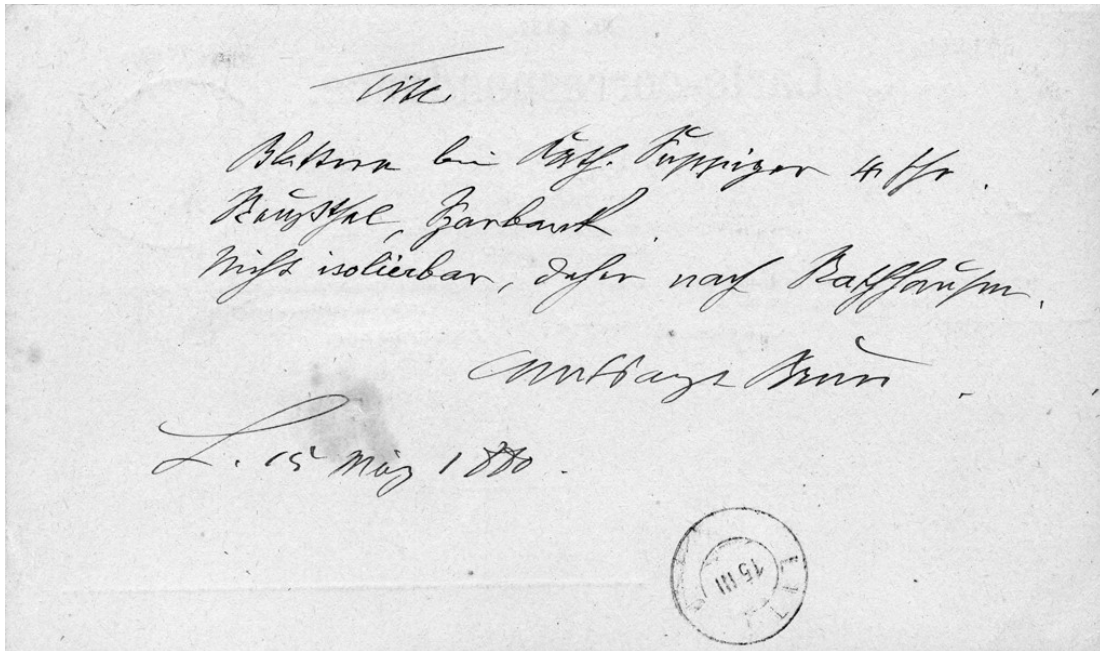 Tit.
Blattern bei Kath. Suppiger 41 Jhr.
Reussthal,
Nicht isolierbar, daher nach Rathhausen.
Amtsarzt Brun
L. 15 März 1880.
15 III